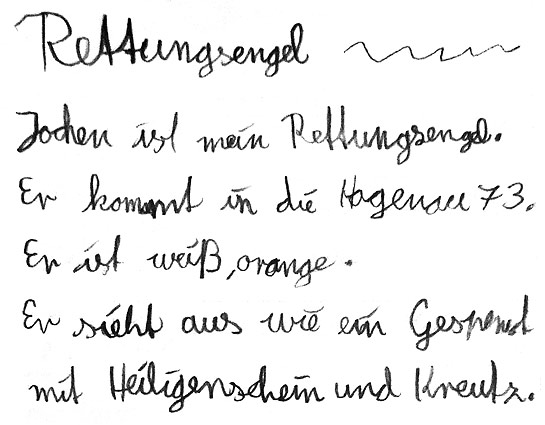 Rettungsengel
Jochen ist mein Rettungsengel.
Er kommt in die Hagenau 73.
Er ist weiß, orange.
Er sieht aus wie ein Gespenst
mit Heiligenschein und Kreutz.